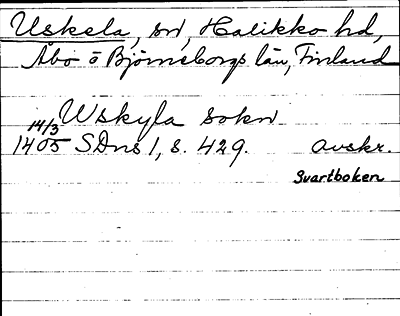 Uskela, sn, Halikko hd,
Åbo o Björneborgs län, Finland
Wskyla sokn
14/3
1405 SDns 1, s. 429. avskr.
Svartboken